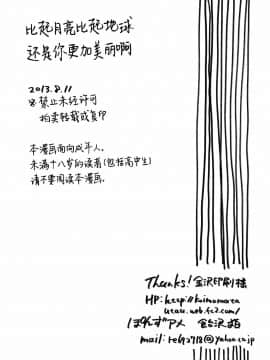 比起月亮比起地球
还是你更加美丽啊
2013.8.11
※禁止未经许可
拍卖转载或复印
本漫画面向成年人.
未满十八岁的读者(包括高中生)
请不要阅读本漫画.
Thanks! 金沢印刷様
HP: http://
.web.fc2.com/
mail: @yahoo.co.jp